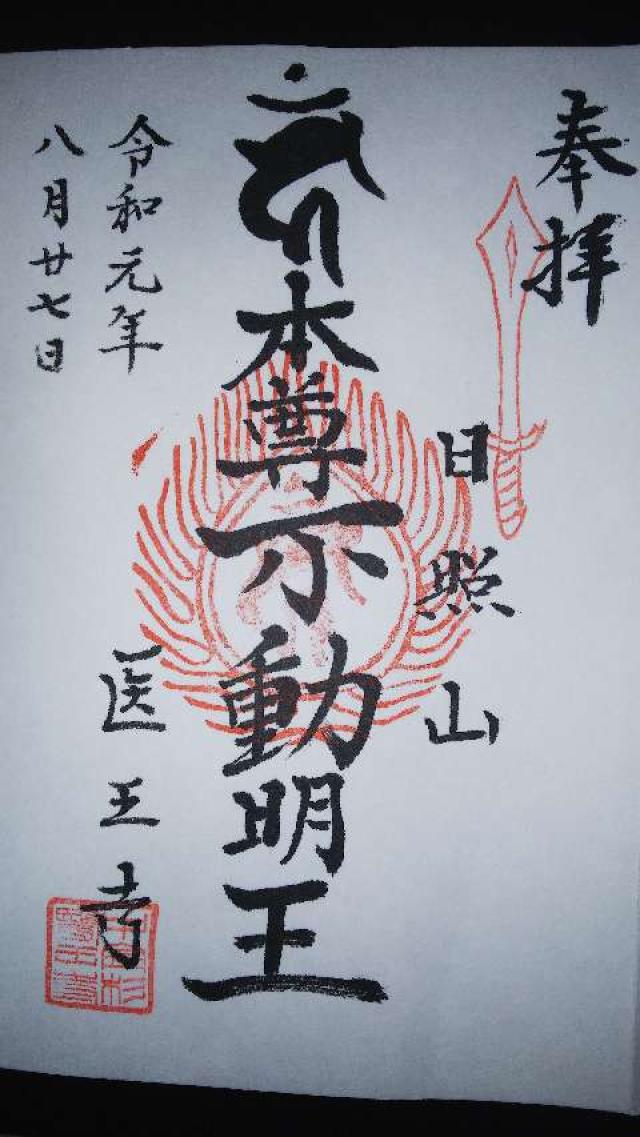 奉拝
日照山
本尊不動明王
医王寺
令和元年
八月廿七日